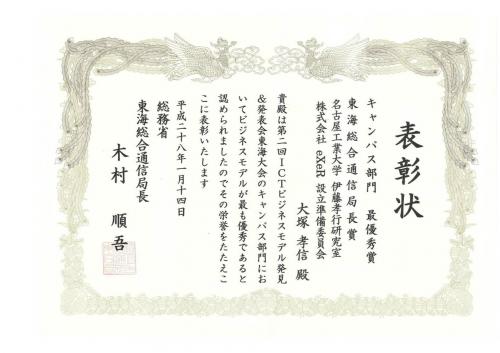 表彰状
キャンパス部門　最優秀賞
東海総合通信局長賞
名古屋工業大学 伊藤孝行研究室
株式会社 eXeR 設立準備委員会
大塚 孝信 殿
貴殿は第二回ＩＣＴビジネスモデル発見
&発表会東海大会のキャンパス部門にお
いてビジネスモデルが最も優秀であると
認められましたのでその栄誉をたたえこ
こに表彰いたします
平成二十八年一月十四日
総務省
東海総合通信局長
木村　順吾